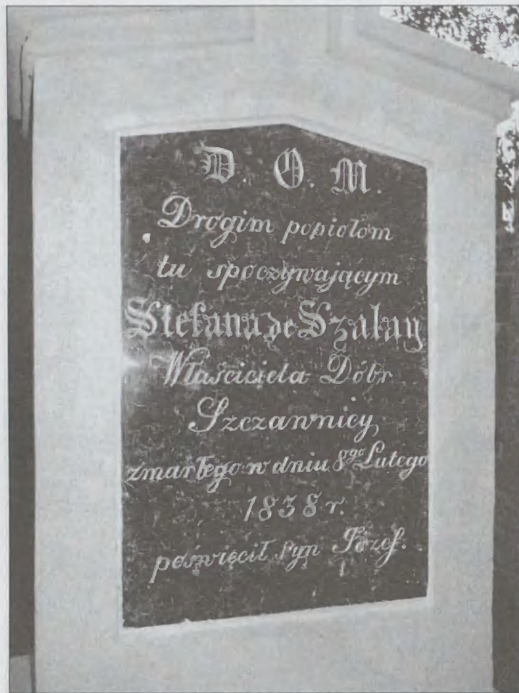 D. O. M.
Drogim popiołom
tu spoczywającym
Stefana de Szalay
Właściciela Dóbr
Szczawnicy
zmarłego w dniu 8go Lutego
1838 r.
poświęcił syn Józef.